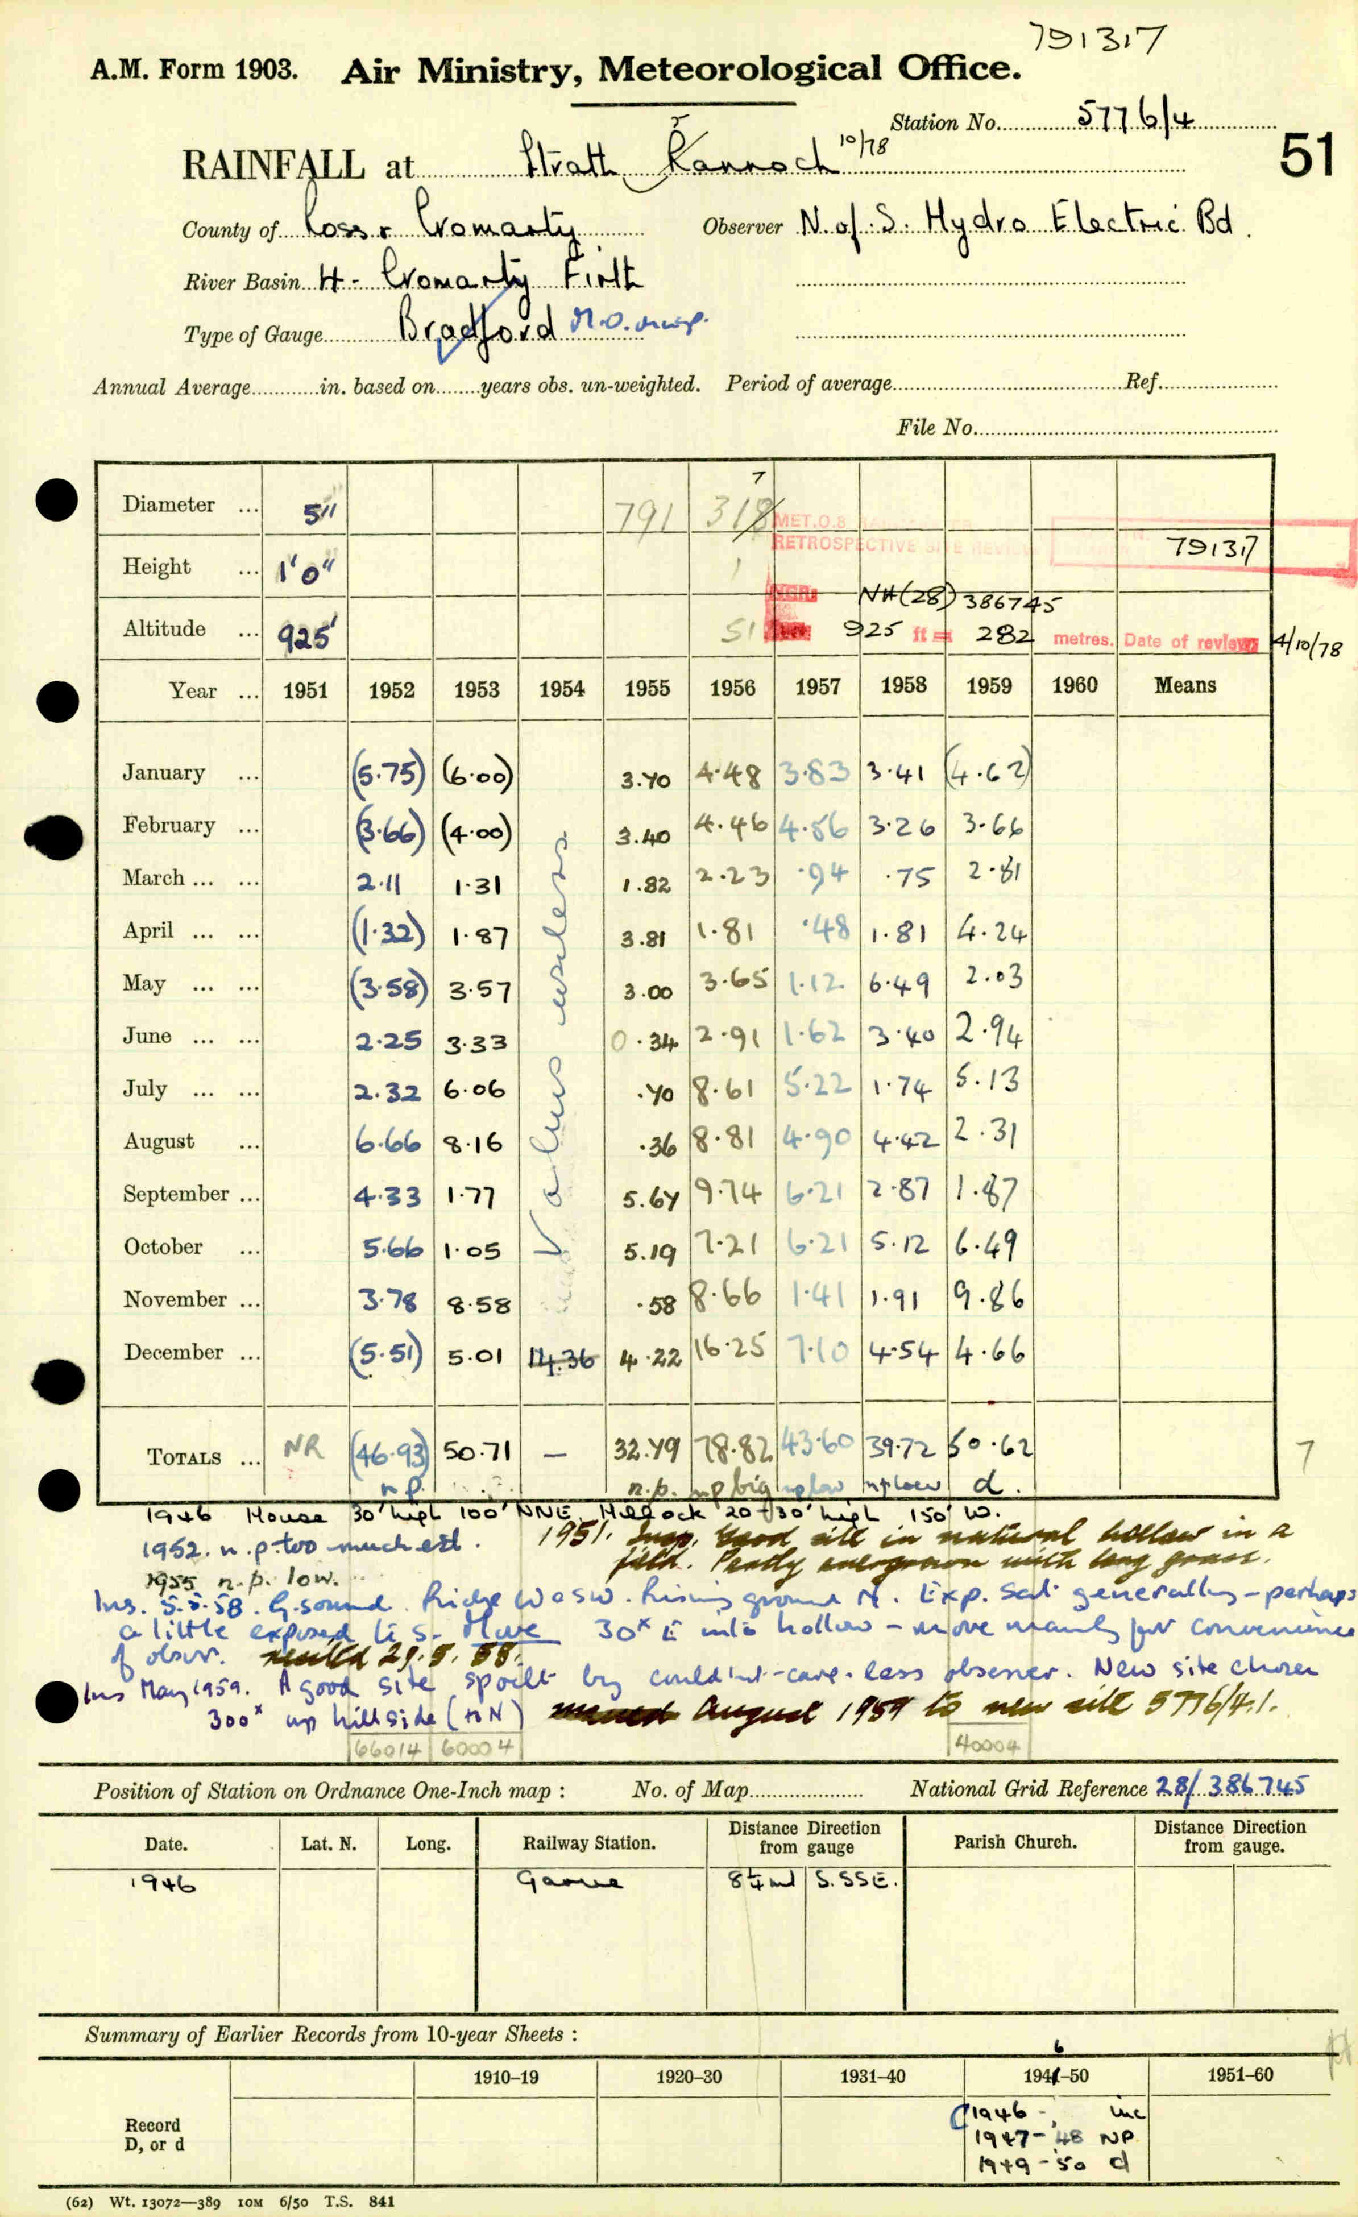 791317
A.M. Form 1903. Air Ministry, Meteorological Office.
Station No. 5776/4
51
RAINFALL at Strath Rannoch 10/78
County of Ross & Cromarty Observer N. of S. Hydro Electric Bd.
River Basin H - Cromarty Firth
Type of Gauge Bradford M.O. insp.
Annual Average in. based on years obs. un-weighted. Period of average Ref.
File No.
Diameter ... 5" 791 318/ 7 MET.O.8
RETROSPECTIVE SITE REVIEW 791317
Height ... 1'0" NGR NH(28) 386745
Altitude ... 925' 51 925 ft = 282 metres. Date of review 4/10/78
Year ... 1951 1952 1953 1954 1955 1956 1957 1958 1959 1960 Means
January ... (5.75) (6.00) 3.70 4.48 3.83 3.41 (4.62)
February ... (3.66) (4.00) 3.40 4.46 4.56 3.26 3.66
March ... ... 2.11 1.31 1.82 2.23 .94 .75 2.81
April ... ... (1.32) 1.87 3.81 1.81 .48 1.81 4.24
May ... ... (3.58) 3.57 3.00 3.65 1.12 6.49 2.03
June ... ... 2.25 3.33 0.34 2.91 1.62 3.40 2.94
July ... ... 2.32 6.06 .70 8.61 5.22 1.74 5.13
August ... 6.66 8.16 .36 8.81 4.90 4.42 2.31
September ... 4.33 1.77 5.67 9.74 6.21 2.87 1.87
October ... 5.66 1.05 5.19 7.21 6.21 5.12 6.49
November ... 3.78 8.58 .58 8.66 1.41 1.91 9.86
December ... (5.51) 5.01 14.36 4.22 16.25 7.10 4.54 4.66
Values useless
TOTALS ... NR (46.93) 50.71 — 32.79 78.82 43.60 39.72 50.62 7
n.p. n.p. np big nplow nplow d.
1946 House 30' high 100' NNE. Hillock 20-30' high 150' W.
1952. n.p. too much est. 1951. Insp. Good site in natural hollow in a
field. Partly overgrown with long grass.
1955 n.p. low.
Ins. 5.5.58. G. sound. Ridge W & SW. Rising ground N. Exp. sat. generally - perhaps
a little exposed to S. Move 30x E into hollow - move mainly for convenience
of obsvr. resited 29.5.58.
Ins May 1959. A good site spoilt by couldn't-care-less observer. New site chosen
300x up hillside (to N) moved August 1959 to new site 5776/4.1.
66014 60004 40004
Position of Station on Ordnance One-Inch map : No. of Map National Grid Reference 28/386745
Date. Lat. N. Long. Railway Station. Distance from gauge Direction Parish Church. Distance Direction from gauge.
1946 Garve 8¼ml S.SSE.
Summary of Earlier Records from 10-year Sheets :
1910–19 1920–30 1931–40 1941–50 6 1951–60
Record
D, or d
1946 - inc
1947-48 NP
1949-50 d
(62) Wt. 13072—389 10M 6/50 T.S. 841